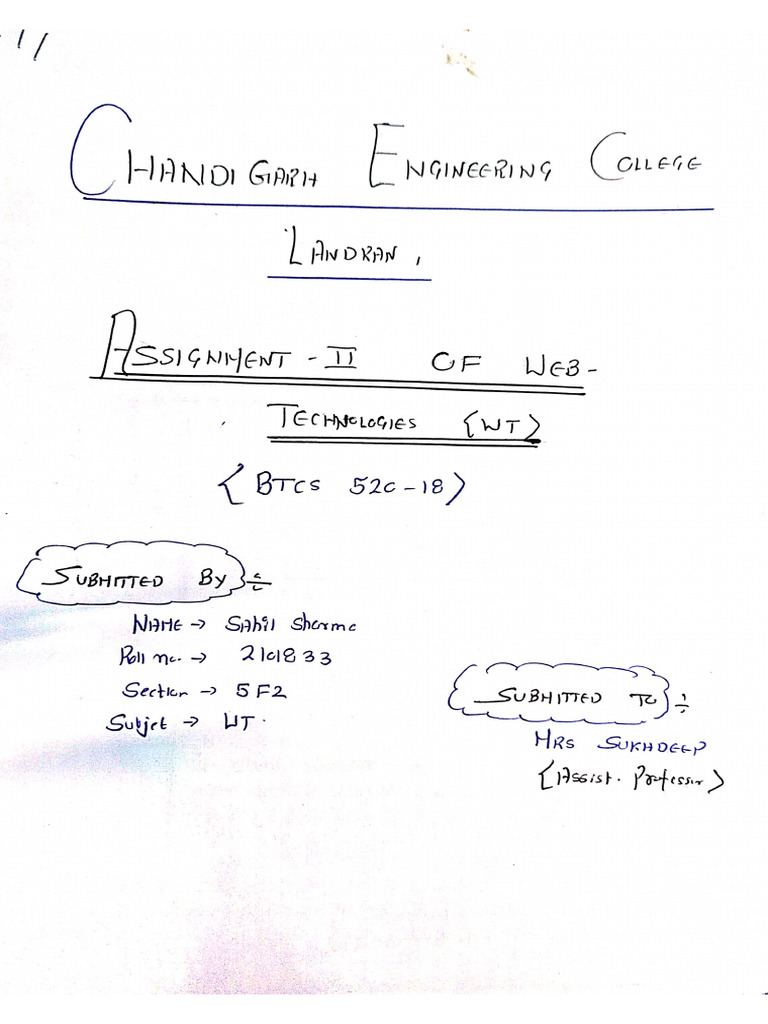 1/
CHANDIGARH ENGINEERING COLLEGE
LANDRAN,
ASSIGNMENT - II OF WEB-
TECHNOLOGIES {WT}
{BTCS 520-18}
SUBMITTED BY ÷
NAME → SAhil Sharma
Roll no. → 2101833
Section → 5F2
Subject → WT.
SUBMITTED TO ÷
MRS SUKHDEEP
{Assist. Professor}